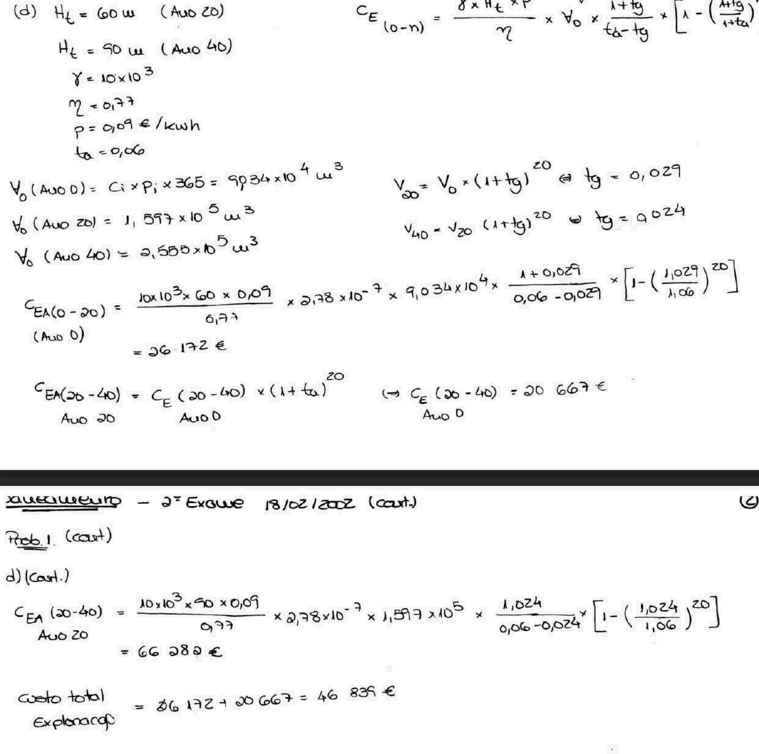 (d) Ht = 60 m (Ano 20)
CE (0-n) = γ × Ht × P / η × V0 × 1+tg / ta-tg × [1 - (1+tg / 1+ta)
Ht = 90 m (Ano 40)
γ = 10×10³
η = 0,77
P = 0,09 €/kWh
ta = 0,06
V0 (Ano 0) = Ci × Pi × 365 = 9,034×10⁴ m³
V20 = V0 × (1+tg)²⁰ ⇔ tg = 0,029
V0 (Ano 20) = 1,597×10⁵ m³
V40 = V20 (1+tg)²⁰ ⇔ tg = 0,024
V0 (Ano 40) = 2,555×10⁵ m³
CEA(0-20) = 10×10³ × 60 × 0,09 / 0,77 × 2,78×10⁻⁷ × 9,034×10⁴ × 1+0,029 / 0,06-0,029 × [1-(1,029 / 1,06)²⁰]
(Ano 0)
= 26 172 €
CEA(20-40) = CE (20-40) × (1+ta)²⁰ (→ CE (20-40) = 20 667 €
Ano 20 Ano 0 Ano 0
Saneamento - 2º Exame 18/02/2002 (cont.)
Prob.1. (cont)
d) (cont.)
CEA (20-40) = 10×10³ × 90 × 0,09 / 0,77 × 2,78×10⁻⁷ × 1,597×10⁵ × 1,024 / 0,06-0,024 × [1-(1,024 / 1,06)²⁰]
Ano 20
= 66 282 €
Custo total = 26 172 + 20 667 = 46 839 €
Exploração